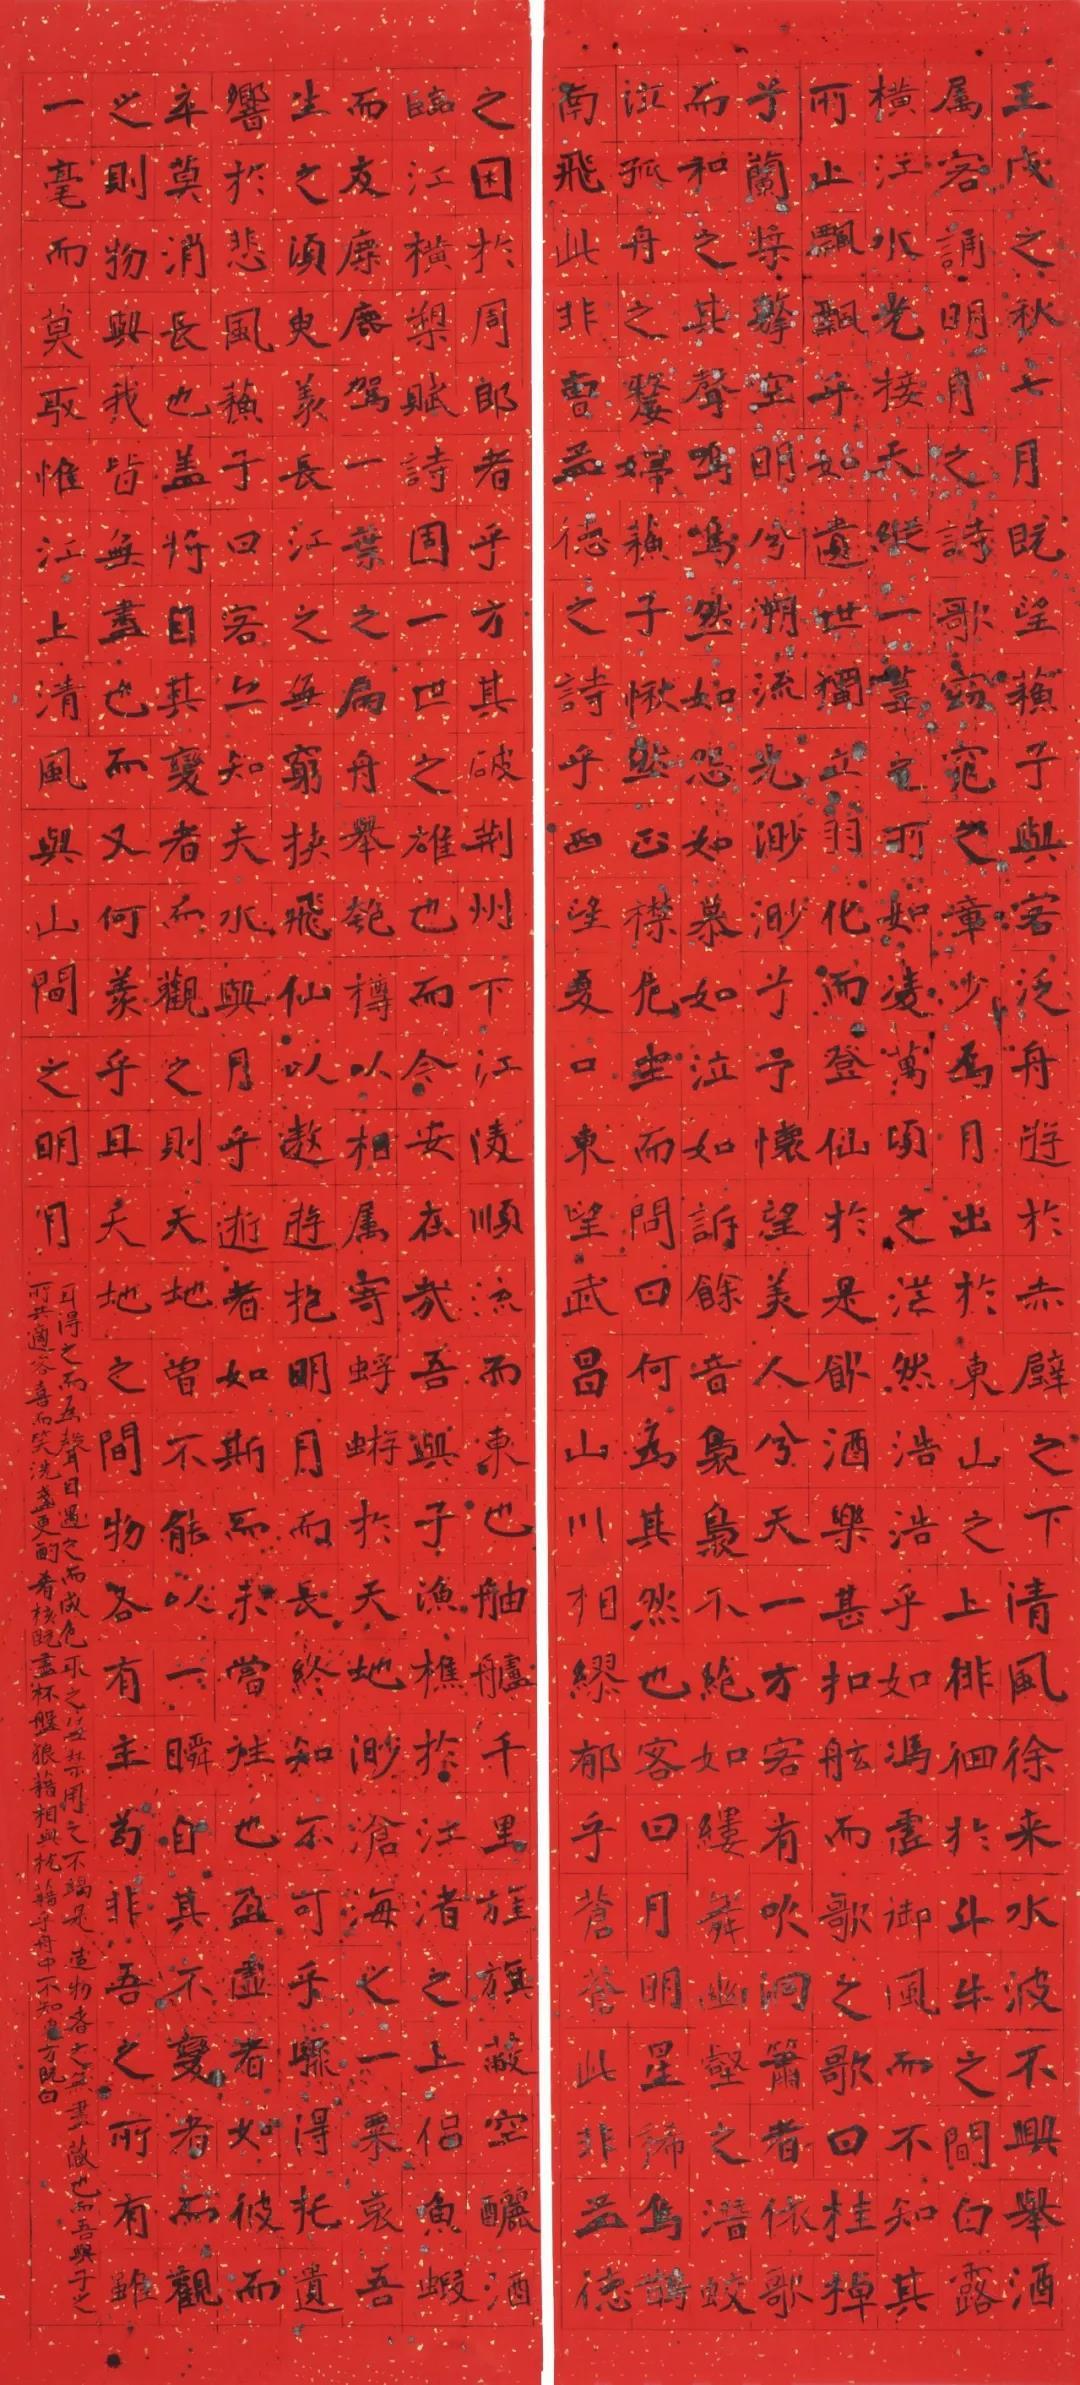 壬戌之秋七月既望蘇子與客泛舟遊於赤壁之下清風徐来水波不興舉酒
属客誦明月之詩歌窈窕之章少焉月出於東山之上徘徊於斗牛之間白露
橫江水光接天縱一葦之所如凌萬頃之茫然浩浩乎如馮虛御風而不知其
所止飄飄乎如遺世獨立羽化而登仙於是飲酒樂甚扣舷而歌之歌曰桂棹
兮蘭槳擊空明兮溯流光渺渺兮予懷望美人兮天一方客有吹洞簫者依歌
而和之其聲嗚嗚然如怨如慕如泣如訴餘音裊裊不絕如縷舞幽壑之潛蛟
泣孤舟之嫠婦蘇子愀然正襟危坐而問曰何為其然也客曰月明星稀烏鵲
南飛此非曹孟德之詩乎西望夏口東望武昌山川相繆郁乎蒼蒼此非孟德
之困於周郎者乎方其破荊州下江陵順流而東也舳艫千里旌旗蔽空釃酒
臨江橫槊賦詩固一世之雄也而今安在哉吾與子漁樵於江渚之上侣魚蝦
而友麋鹿駕一葉之扁舟舉匏樽以相属寄蜉蝣於天地渺滄海之一粟哀吾
生之須臾羨長江之無窮挾飛仙以遨遊抱明月而長終知不可乎驟得托遺
響於悲風蘇子曰客亦知夫水與月乎逝者如斯而未嘗往也盈虛者如彼而
卒莫消長也盖將自其變者而觀之則天地曾不能以一瞬自其不變者而觀
之則物與我皆無盡也而又何羨乎且天地之間物各有主苟非吾之所有雖
一毫而莫取惟江上清風與山間之明月
耳得之而為聲目遇之而成色取之無禁用之不竭是造物者之無盡藏也而吾與子之
所共適客喜而笑洗盞更酌肴核既盡杯盤狼籍相與枕藉乎舟中不知東方既白